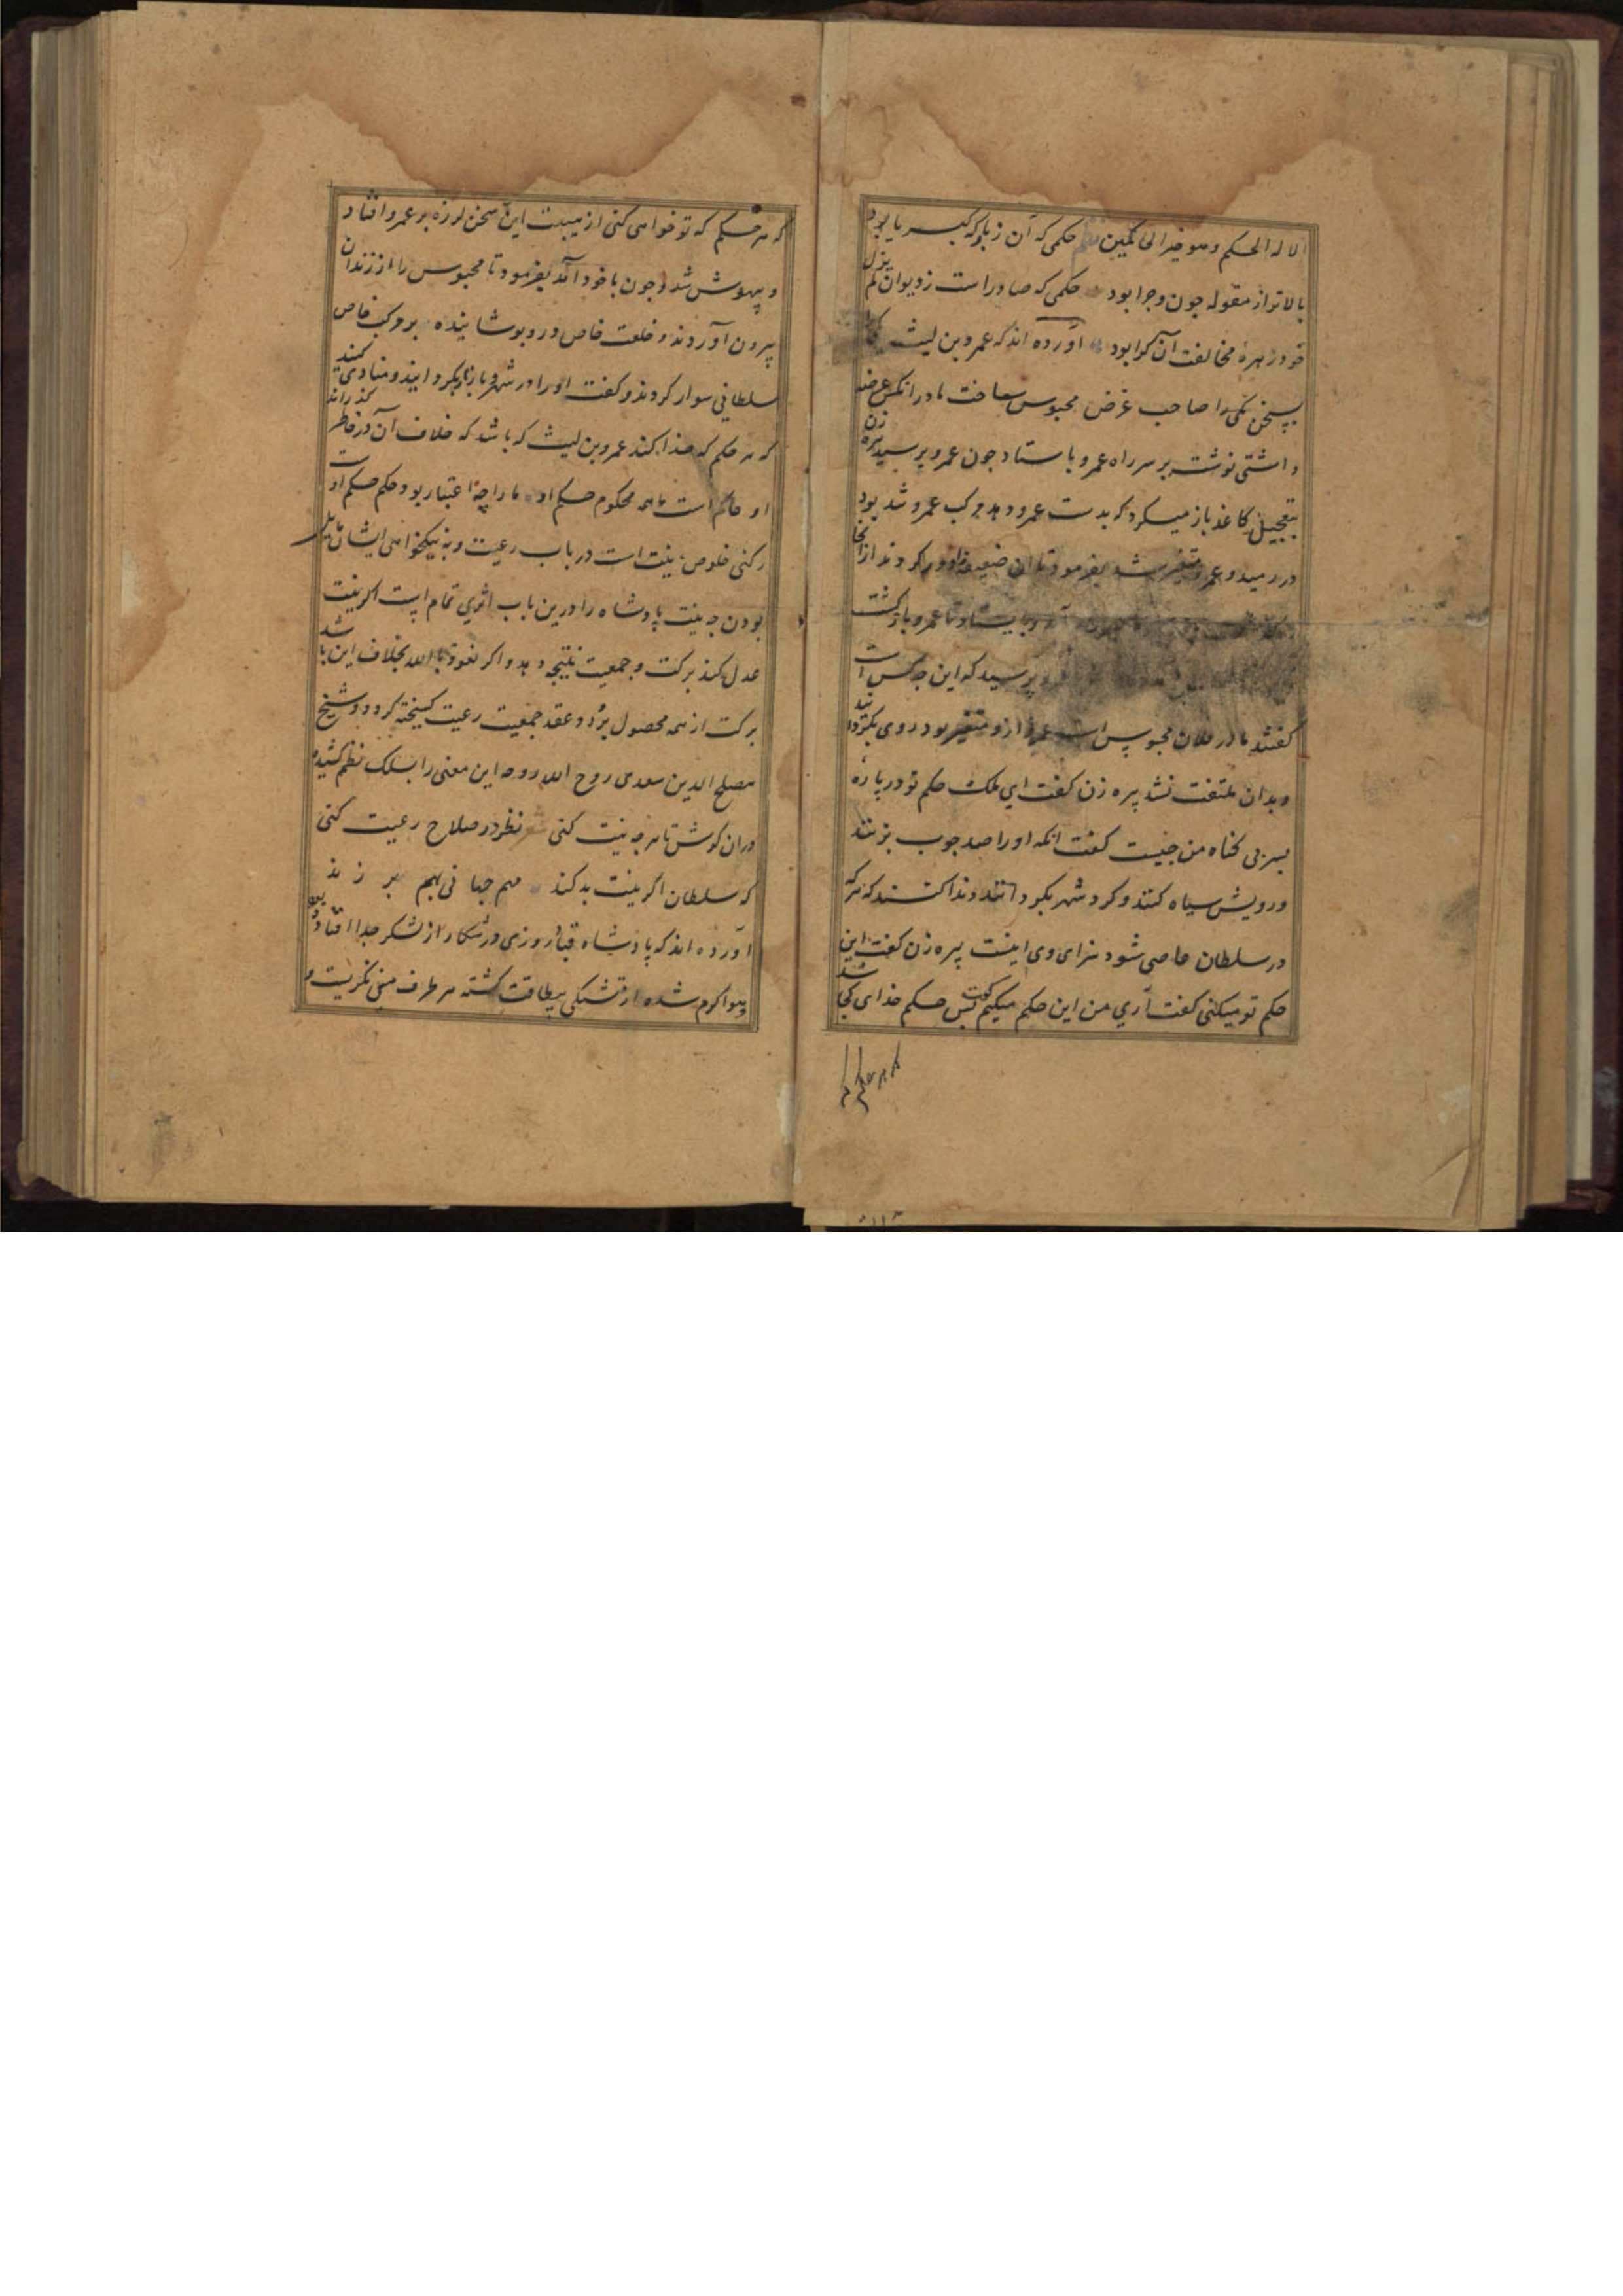 الا له الحکم و هو خیر الحاکمین نظم حکمی که آن ز بارکه کبریا بود
بالاتر از مقوله جون و جرا بود حکمی که صادر است ز دیوان لم یزل
خود زهره مخالفت آن کرا بود آورده اند که عمرو بن لیث
بسخن صاحب غرض محبوس ساخت مادر انکس عرضه
داشتی نوشت بر سر راه عمرو باستاد جون عمرو برسید پیره زن
بتعجیل کاغذ باز میکرد که بدست عمرو دهد مرکب عمرو تند بود
در رمید و عمرو متغیر شد بفرمود تا ان ضعیفه را دور کردند از انجا
بایستاد تا عمرو بازکشت
پرسید که این جه کس است
کفتند مادر فلان محبوس است عمرو ازو متغیر بود روی بکردانید
و بدان ملتفت نشد پیره زن کفت ای ملک حکم تو در باره
بسر بی کناه من جیست کفت انکه او را صد جوب بزنند
و رویش سیاه کنند و کرد شهر بکردانند و ندا کنند که هرکه
در سلطان عاصی شود سزای وی اینست پیره زن کفت این
حکم تو میکنی کفت آری من این حکم میکنم کفت بس حکم خدای کجا شد
که هر حکم که تو خواهی کنی از هیبت این سخن لرزه بر عمرو افتاد
و بیهوش شد و جون با خود آمد بفرمود تا محبوس را از زندان
بیرون آوردند و خلعت خاص در و بوشانیده بر مرکب خاص
سلطانی سوار کردند و کفت او را در شهر و بازار بکردانید و منادی کنید
که هر حکم که خدا کند عمرو بن لیث که باشد که خلاف آن در خاطر کذراند
او حاکم است ما همه محکوم حکم او ما را چه اعتبار بود حکم حکم اوست
رکنی خلوص نیت است در باب رعیت و به نیکخواهی ایشان مایل
بودن جه نیت پادشاه را درین باب اثری تمام است اکر نیت
عدل کند برکت و جمعیت نتیجه دهد و اکر نعوذ بالله بخلاف این باشد
برکت از همه محصول برُد و عقد جمعیت رعیت کسیخته کردد و شیخ
مصلح الدین سعدی روح الله روحه این معنی را بسلک نظم کشیده
دران کوش تا هر جه نیت کنی نظر در صلاح رعیت کنی
که سلطان اگر نیت بد کند همه جهانی بهم بر زند
آورده اند که پادشاه قباد روزی در شکار از لشکر جدا افتاد
و هوا کرم شده از تشنکی بیطاقت کشته هر طرف می نکریست و